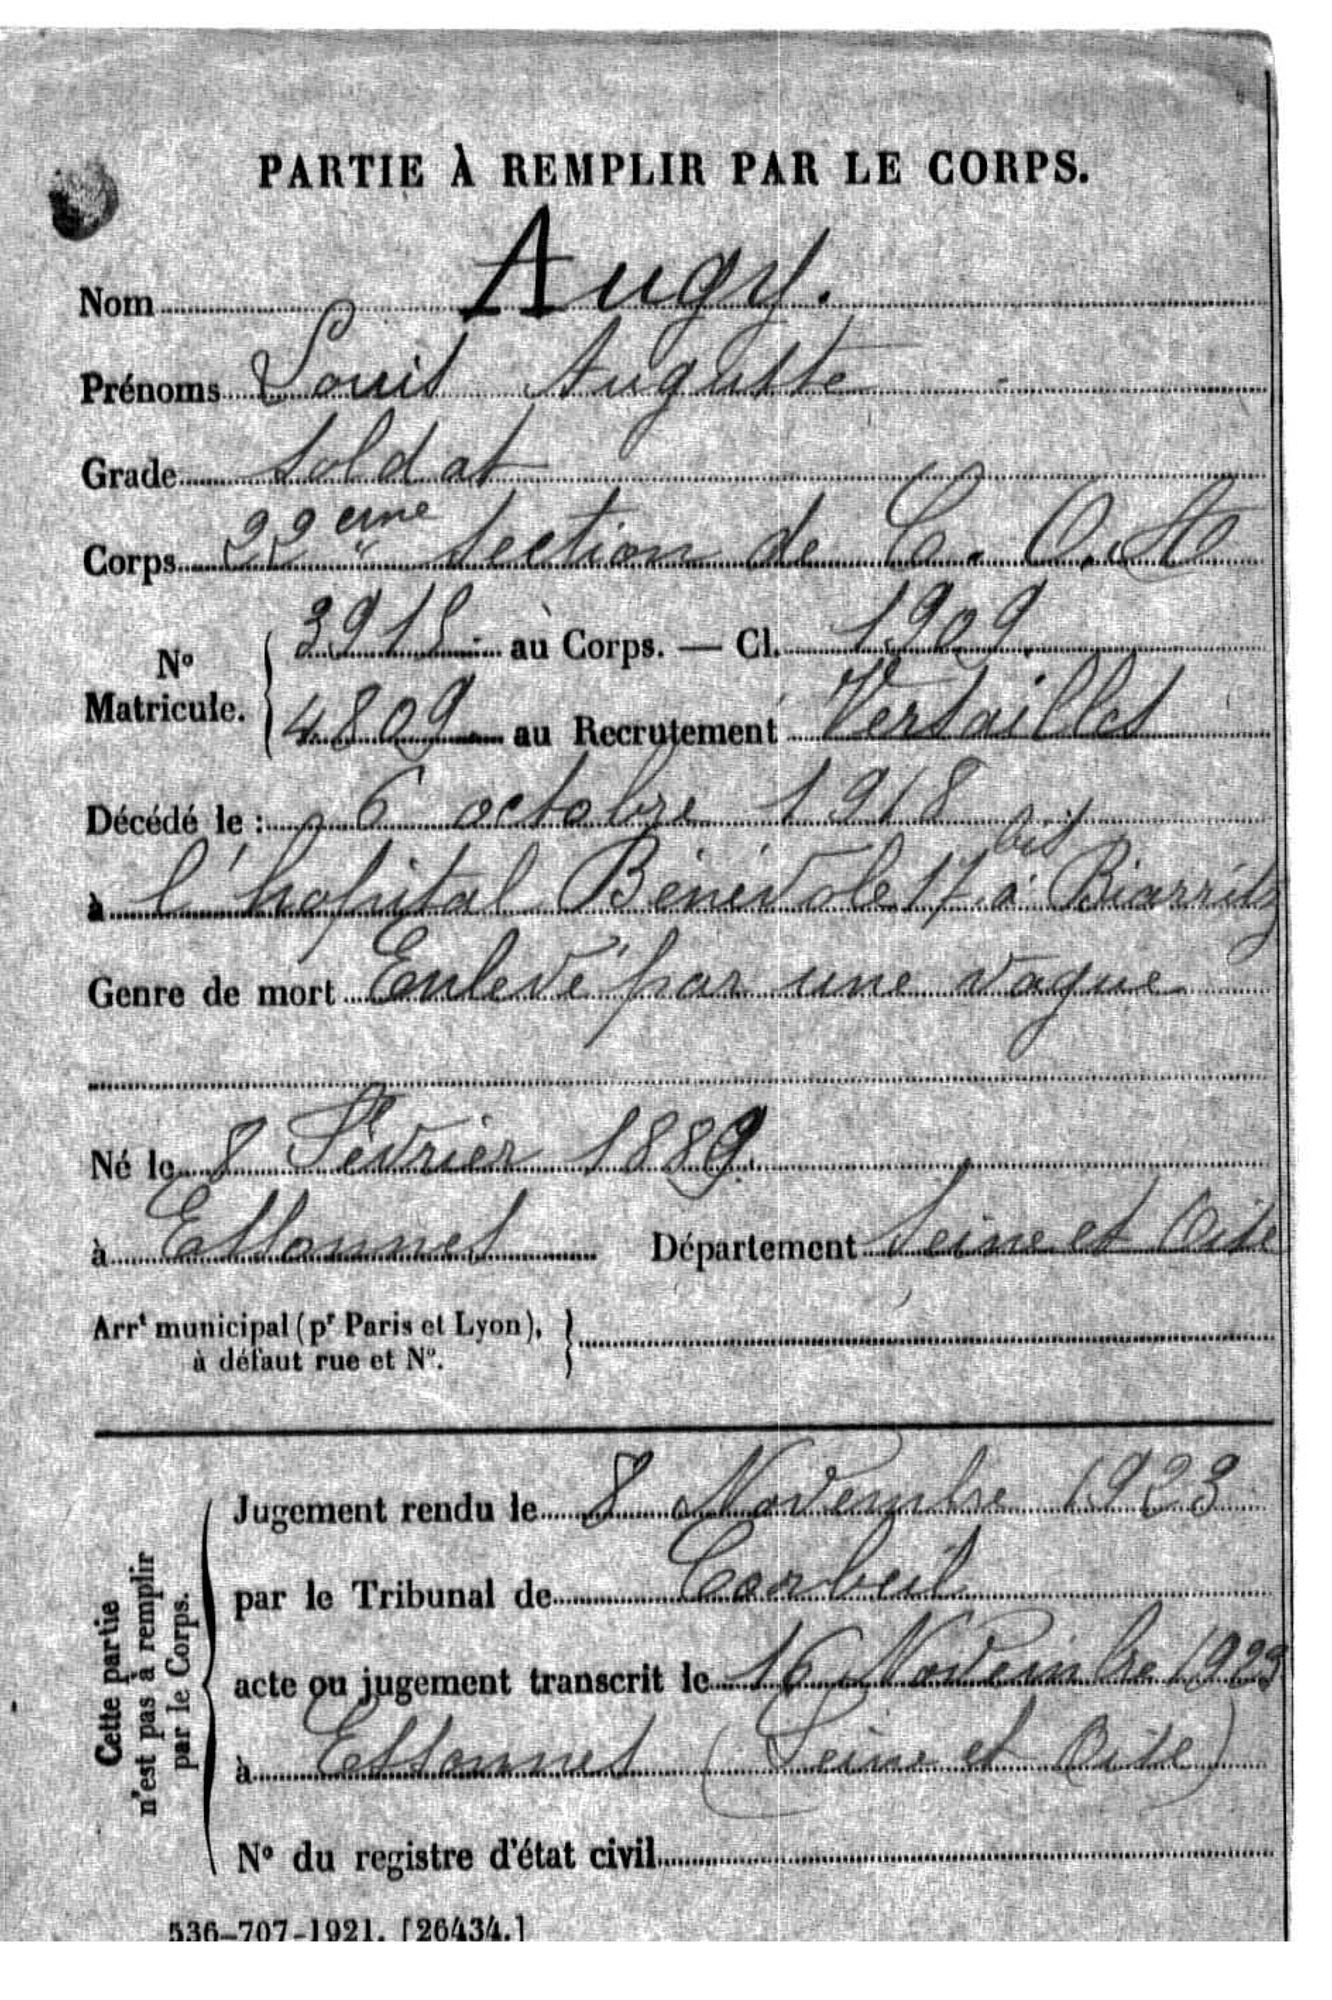 PARTIE À REMPLIR PAR LE CORPS.
Nom Augy.
Prénoms Louis Auguste
Grade soldat
Corps 22 eme section de C. O. A
N° Matricule. 3915 au Corps. — Cl. 1909
4809 au Recrutement Versailles
Décédé le : 6 octobre 1918
à l'hopital Bénévole 17 bis à Biarritz
Genre de mort Enlevé par une vague
Né le 8 Février 1889.
à Essonnes Département Seine et Oise
Arrt municipal (pr Paris et Lyon),
à défaut rue et N°.
Cette partie
n'est pas à remplir
par le Corps.
Jugement rendu le 8 Novembre 1923
par le Tribunal de Corbeil
acte ou jugement transcrit le 16 Novembre 1923
à Essonnes (Seine et Oise)
N° du registre d'état civil
536-707-1921. [26434.]